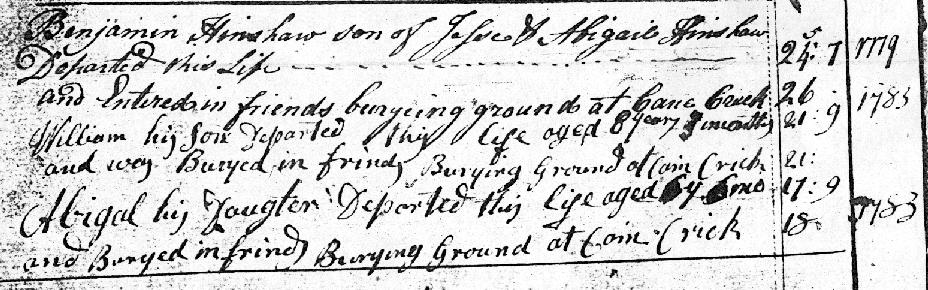 Benjamin Hinshaw son of Jesse & Abigail Hinshaw
Departed this Life 24: 7 1779
and Entered in friends buryeing ground at Cane Creek 26
William his Son Departed this life aged 8 years months 21: 9 1783
and was Buryed in frinds Burying Ground at Cain Crick 21:
Abigal his Daugter Departed this life aged 6y 6mo 17: 9 1783
and Buryed in frinds Burying Ground at Cain Crick 18: